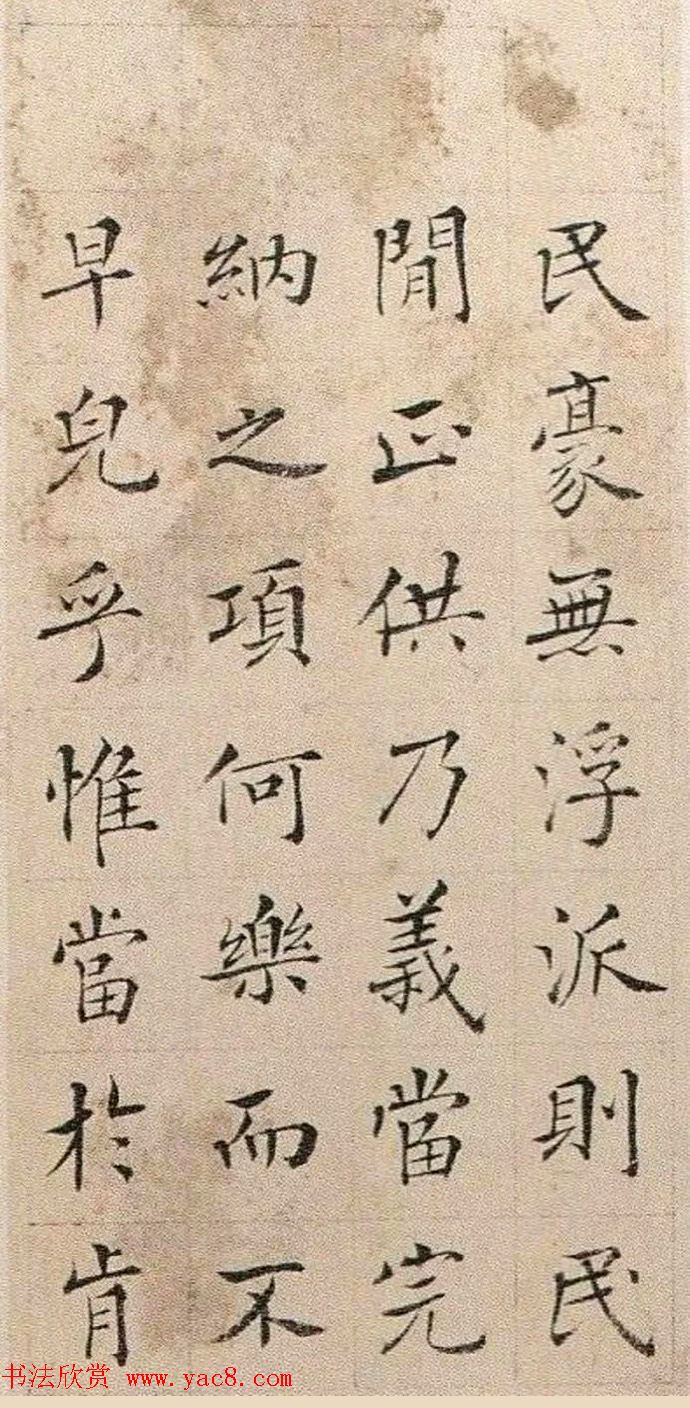 民豪無浮派則民
閒正供乃義當完
納之項何樂而不
早皃乎惟當於肯
书法欣赏 www.yac8.com